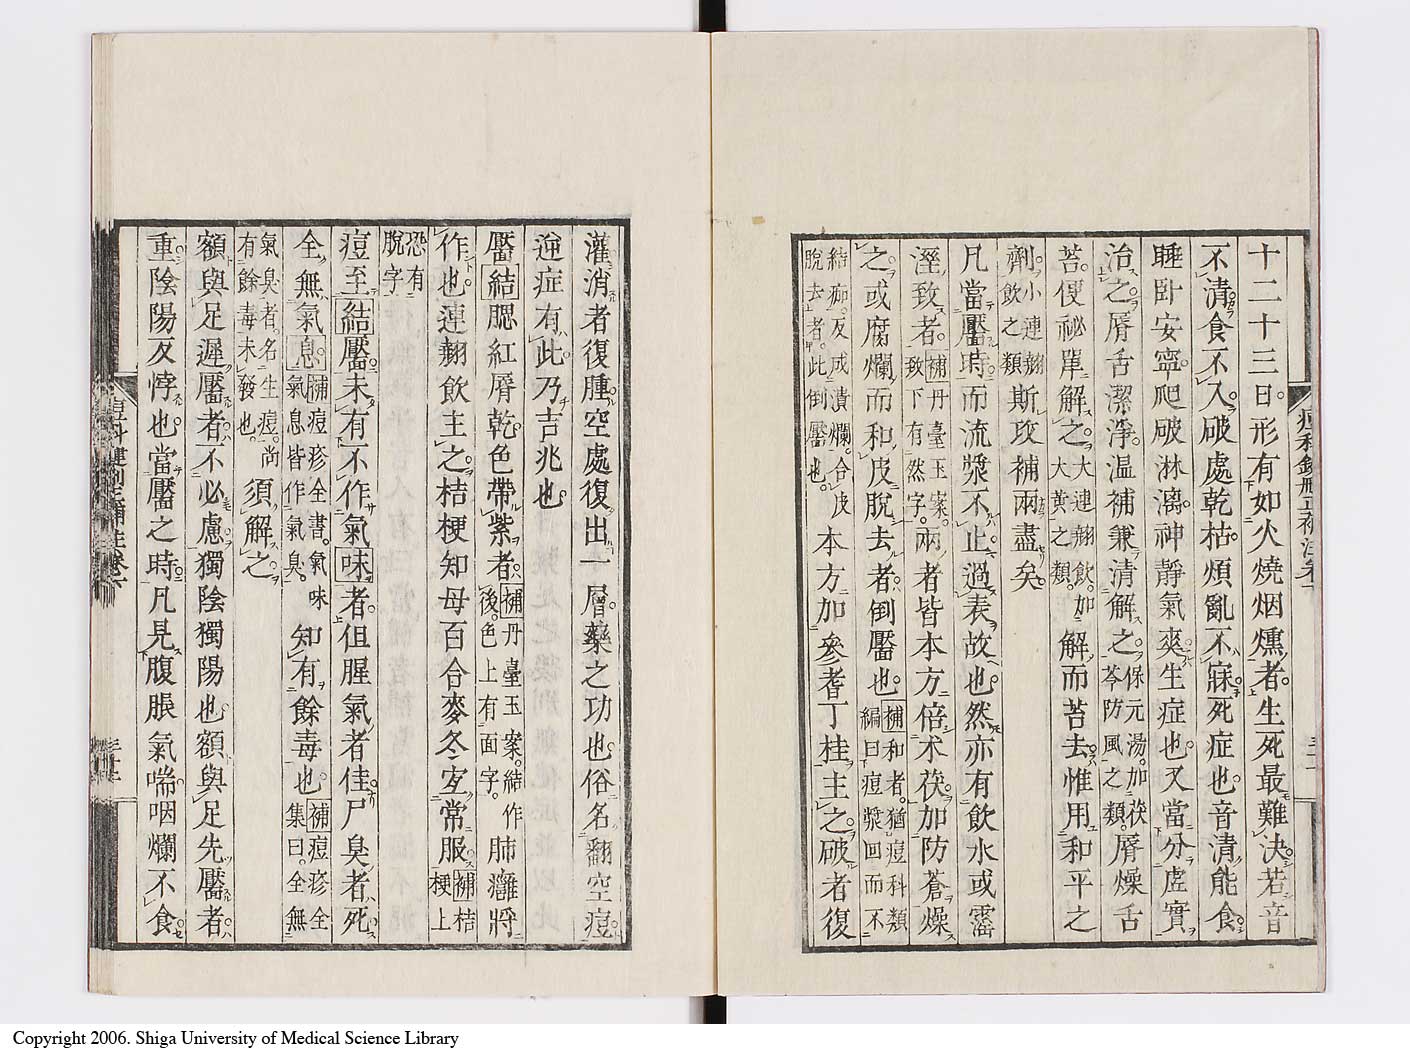 十二十三日。形有如火燒烟燻者。生死最難決。若音
不清食不入破處乾枯。煩亂不寐。死症也。音清能食。
睡卧安寧。爬破淋漓。神靜氣爽。生症也。又當分虛實
治之。脣舌潔淨。温補兼清解之。保元湯。加茯苓防風之類。脣燥舌
苔。便祕單解之。大連翹飲。加大黄之類。解而苔去。惟用和平之
劑。小連翹飲之類斯攻補兩盡矣。
凡當靨時。而流漿不止。過表故也。然亦有飲水或濡
溼致者。補丹臺玉案。致下有然字。兩者皆本方倍朮茯。加防蒼燥
之。或腐爛而和皮脫去者。倒靨也。補和者。猶痘科類編曰痘漿回而不
結痂。反成潰爛。合皮脫去者。此倒靨也。本方加參耆丁桂主之。破者復
灌消者復腫空處復出一層。藥之功也。俗名翻空痘。
逆症有此。乃吉兆也。
靨結腮紅脣乾色帶紫者。補丹臺玉案。結作後。色上有面字。肺癰將
作也。連翹飲主之。桔梗知母百合麥冬宜常服。補桔梗上
恐有脫字
痘至結靨未有不作氣味者。但腥氣者佳。尸臭者死。
全無氣息。補痘疹全書。氣味氣息皆作氣臭。知有餘毒也。補痘疹全集曰。全無
氣臭者。名生痘。尚有餘毒未發也。須解之。
額與足遲靨者。不必慮。獨陰獨陽也。額與足先靨者。
重陰陽反悖也。當靨之時。凡見腹脹氣喘咽爛不食。
Copyright 2006. Shiga University of Medical Science Library